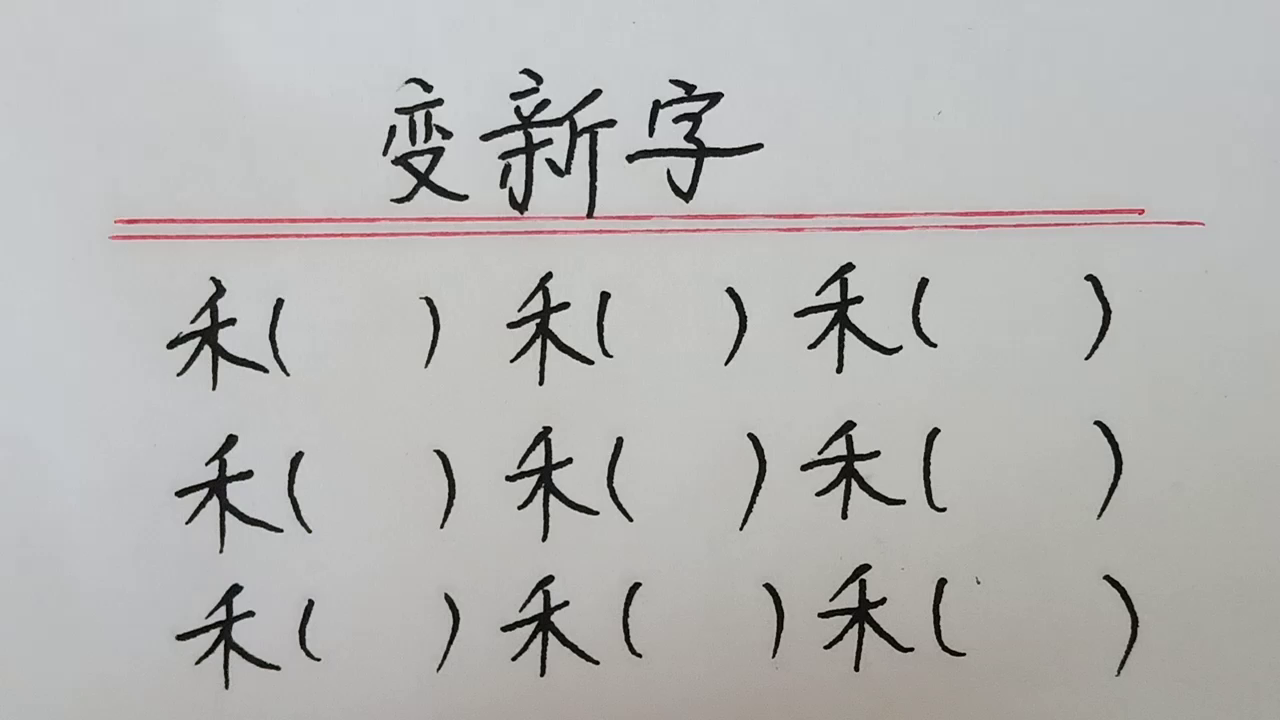 变新字
禾( ) 禾( ) 禾( )
禾( ) 禾( ) 禾( )
禾( ) 禾( ) 禾( )